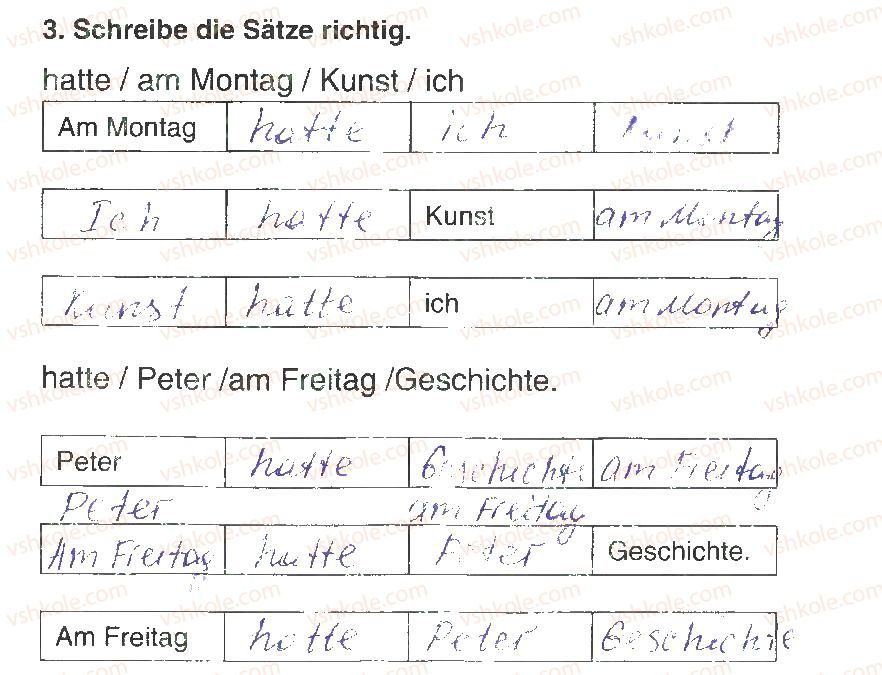 3. Schreibe die Sätze richtig.
hatte / am Montag / Kunst / ich
Am Montag hatte ich Kunst
Ich hatte Kunst am Montag
Kunst hatte ich am Montag
hatte / Peter /am Freitag /Geschichte.
Peter hatte Geschichte am Freitag
Peter am Freitag
Am Freitag hatte Peter Geschichte.
Am Freitag hatte Peter Geschichte
vshkole.com